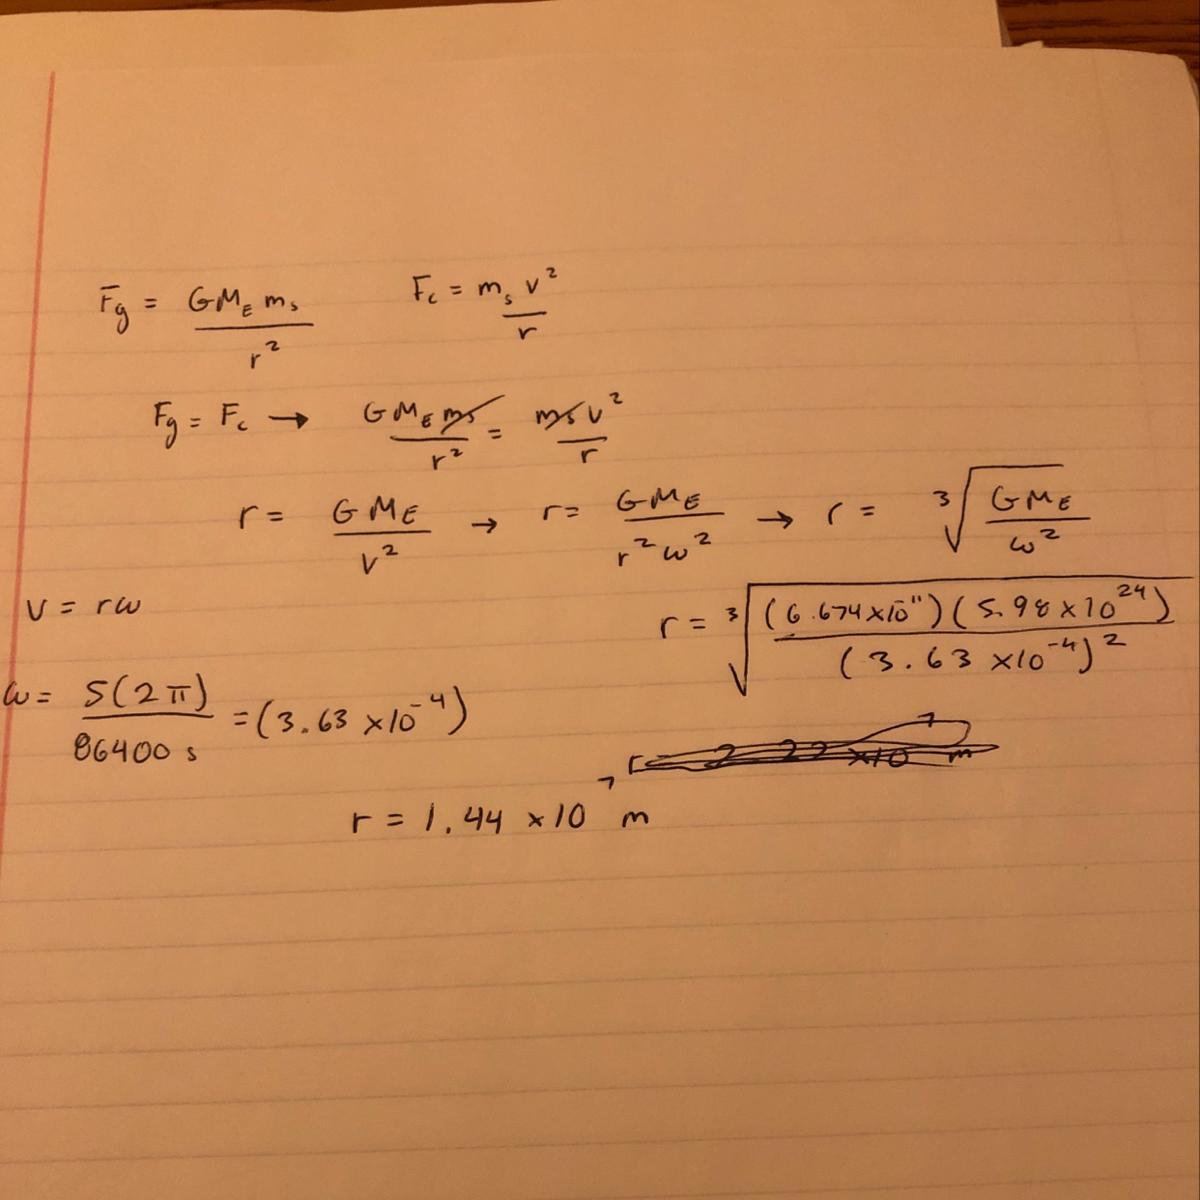 Fg = GM_E m_s / r²    F_c = m_s v² / r
Fg = F_c → GM_E m_s / r² = m_s v² / r
r = GM_E / v² → r = GM_E / r²ω² → r = ³√(GM_E / ω²)
v = rω
r = ³√((6.674×10⁻¹¹)(5.98×10²⁴) / (3.63×10⁻⁴)²)
ω = 5(2π) / 86400 s = (3.63×10⁻⁴)
r = 1.44 ×10⁷ m